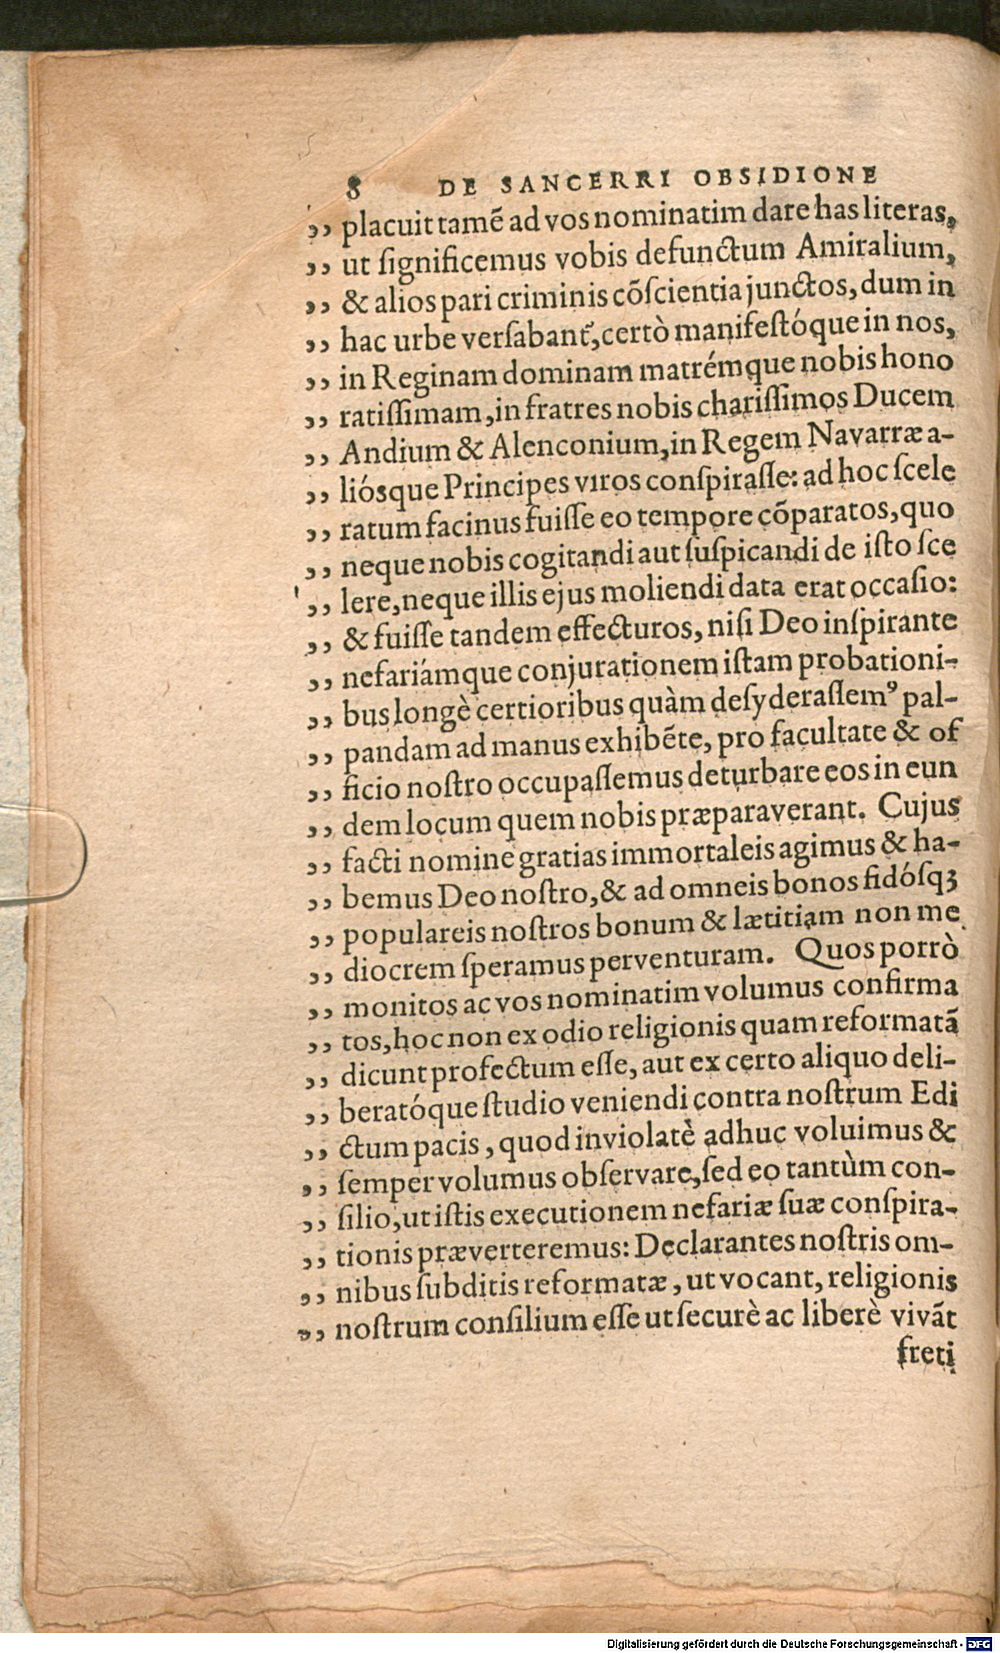 8 DE SANCERRI OBSIDIONE
,, placuit tamẽ ad vos nominatim dare has literas,
,, ut ſignificemus vobis defunctum Amiralium,
,, & alios pari criminis cõſcientia junctos, dum in
,, hac urbe verſabant᷑, certò manifeſtóque in nos,
,, in Reginam dominam matrémque nobis hono
,, ratiſſimam, in fratres nobis chariſſimos Ducem
,, Andium & Alenconium, in Regem Navarræ a-
,, liósque Principes viros conſpiraſſe: ad hoc ſcele
,, ratum facinus fuiſſe eo tempore cõparatos, quo
,, neque nobis cogitandi aut ſuſpicandi de iſto ſce
,, lere, neque illis ejus moliendi data erat occaſio:
,, & fuiſſe tandem effecturos, niſi Deo inſpirante
,, nefariámque conjurationem iſtam probationi-
,, bus longè certioribus quàm deſyderaſſemꝰ pal-
,, pandam ad manus exhibẽte, pro facultate & of
,, ficio noſtro occupaſſemus deturbare eos in eun
,, dem locum quem nobis præparaverant. Cujus
,, facti nomine gratias immortaleis agimus & ha-
,, bemus Deo noſtro, & ad omneis bonos fidóſqꝫ
,, populareis noſtros bonum & lætitiam non me
,, diocrem ſperamus perventuram. Quos porrò
,, monitos ac vos nominatim volumus confirma
,, tos, hoc non ex odio religionis quam reformatã
,, dicunt profectum eſſe, aut ex certo aliquo deli-
,, beratóque ſtudio veniendi contra noſtrum Edi
,, ctum pacis, quod inviolatè adhuc voluimus &
,, ſemper volumus obſervare, ſed eo tantùm con-
,, ſilio, ut iſtis executionem nefariæ ſuæ conſpira-
,, tionis præverteremus: Declarantes noſtris om-
,, nibus ſubditis reformatæ, ut vocant, religionis
,, noſtrum conſilium eſſe ut ſecurè ac liberè vivãt
freti
Digitalisierung gefördert durch die Deutsche Forschungsgemeinschaft - DFG